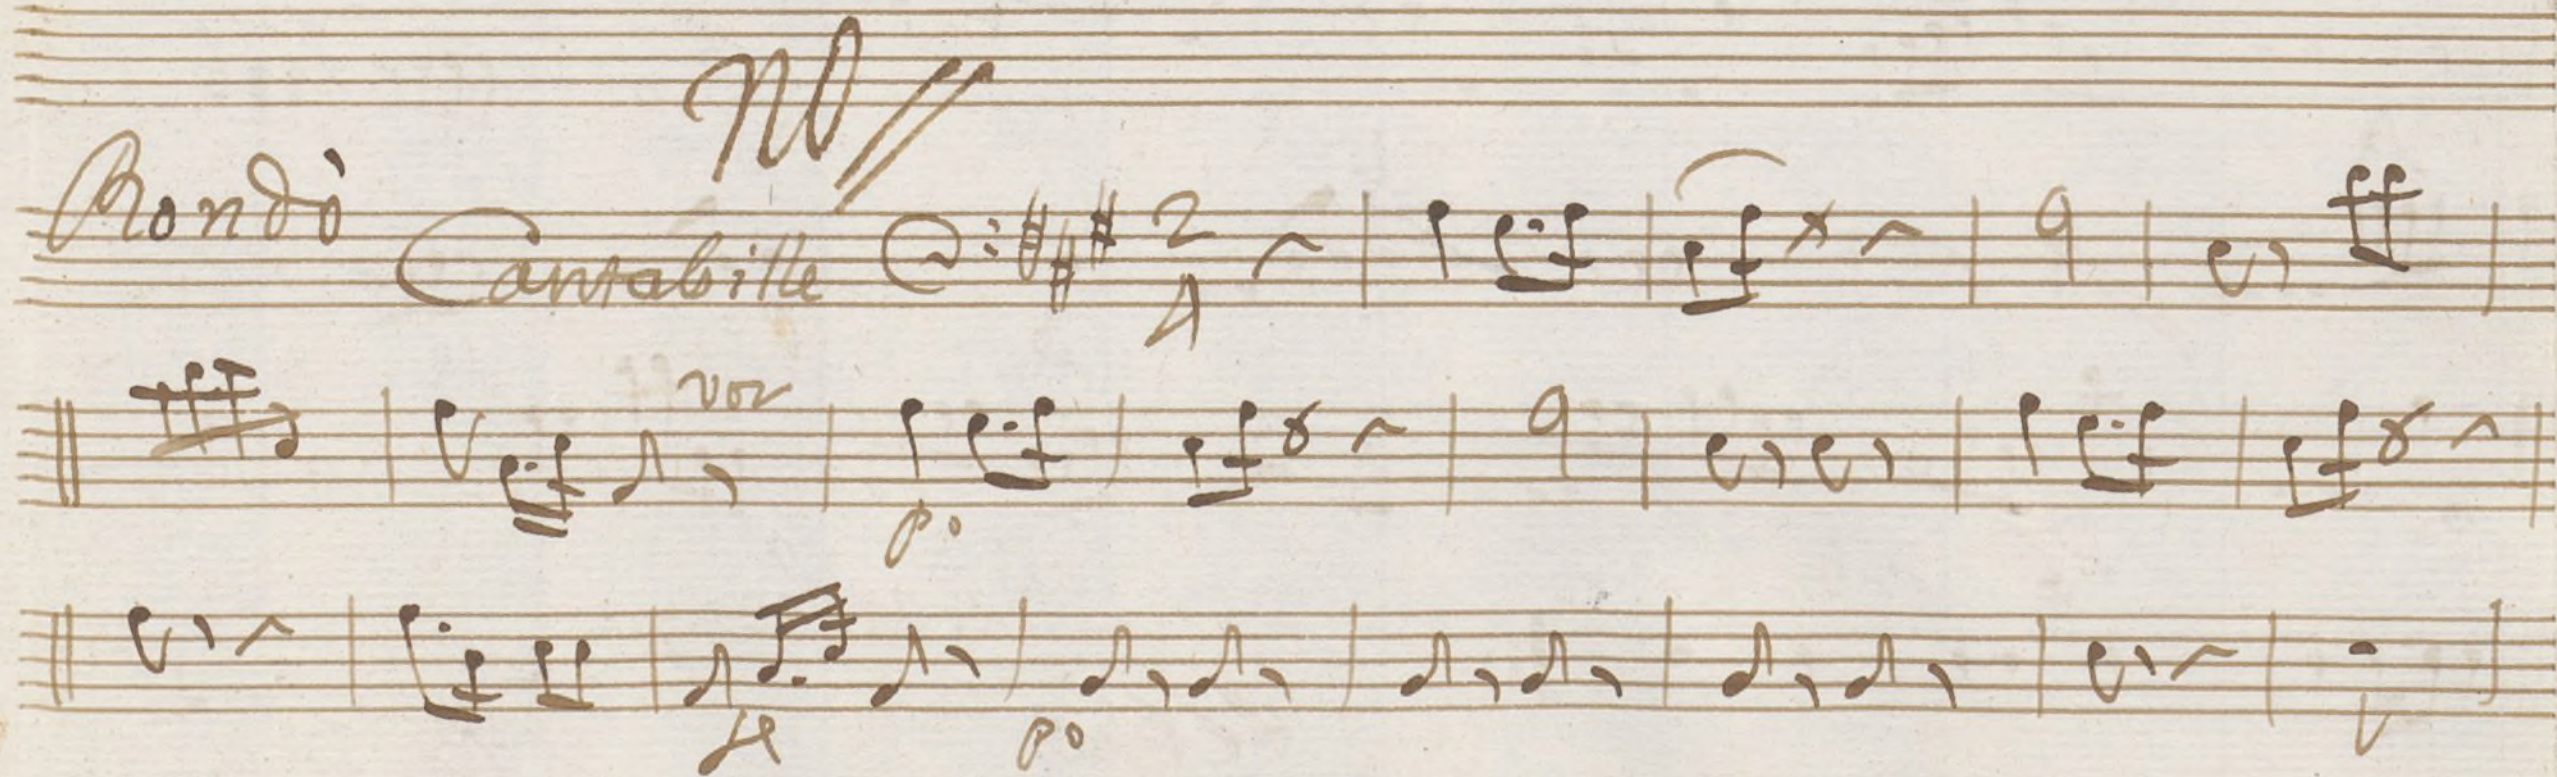 Rondò
Cantabille
2
4
vor
p.o
fe
po